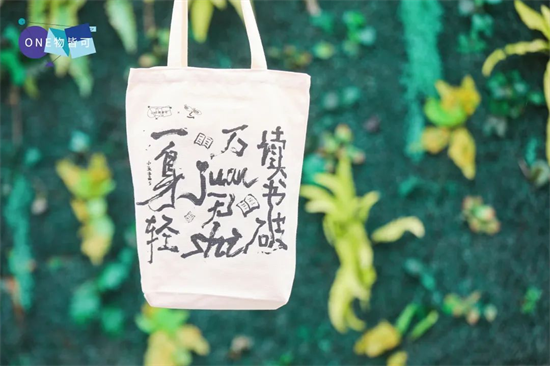 ONE物皆可
读书破
万juan无shi
一身轻